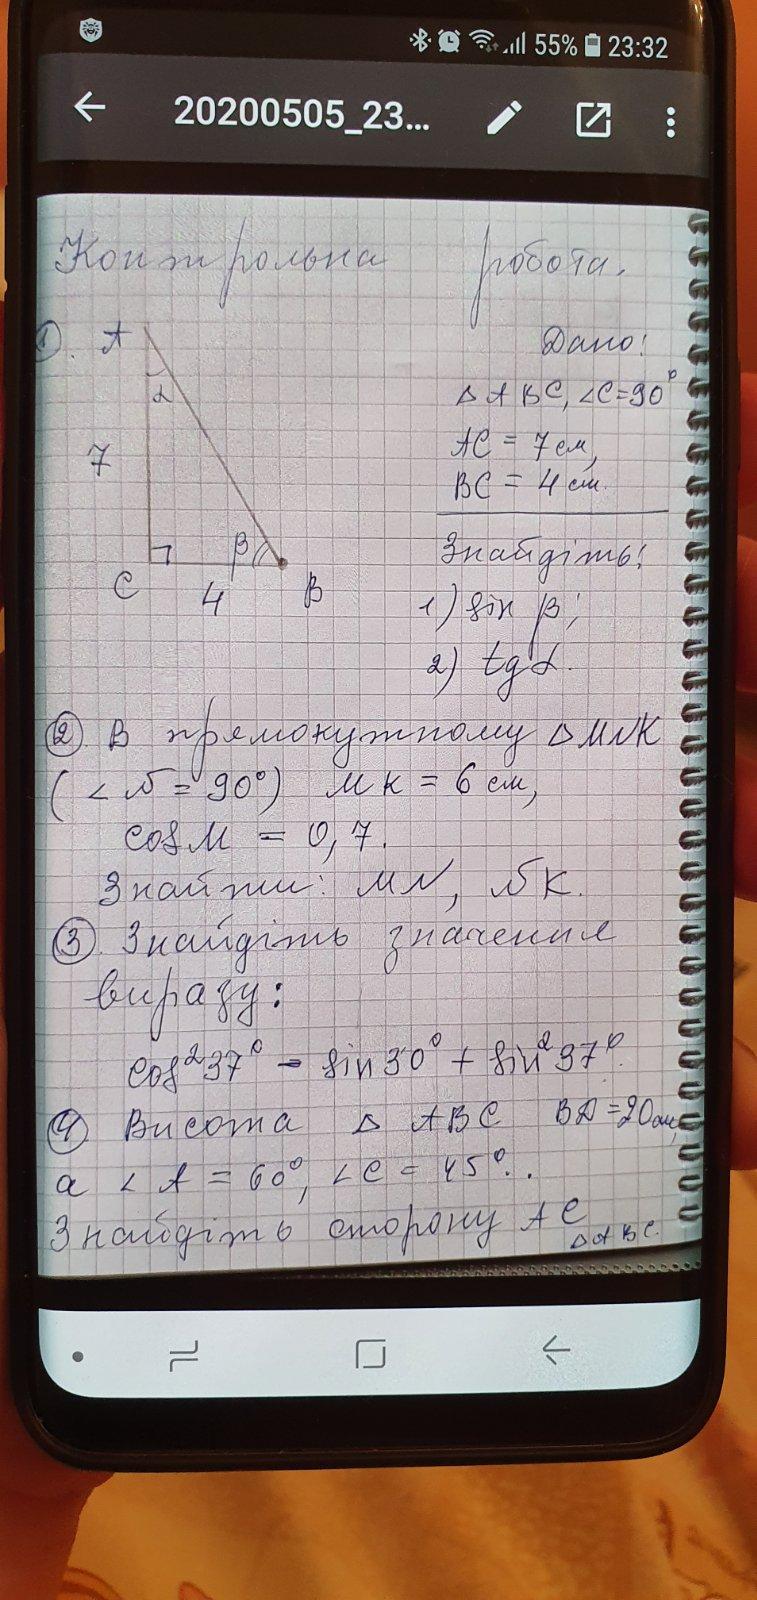 55% 23:32
20200505_23...
Контрольна робота.
1. A
α
7
C
4
β
B
Дано:
△ABC, ∠C=90°
AC = 7 см,
BC = 4 см.
Знайдіть:
1) sin β;
2) tg α.
2. В прямокутному △MNK
(∠N = 90°) MK = 6 см,
cos M = 0,7.
Знайти: MN, NK.
3. Знайдіть значення
виразу:
cos²37° - sin 30° + sin²37°.
4. Висота △ ABC BD = 20 см,
а ∠A = 60°, ∠C = 45°..
Знайдіть сторону AC
△ABC.